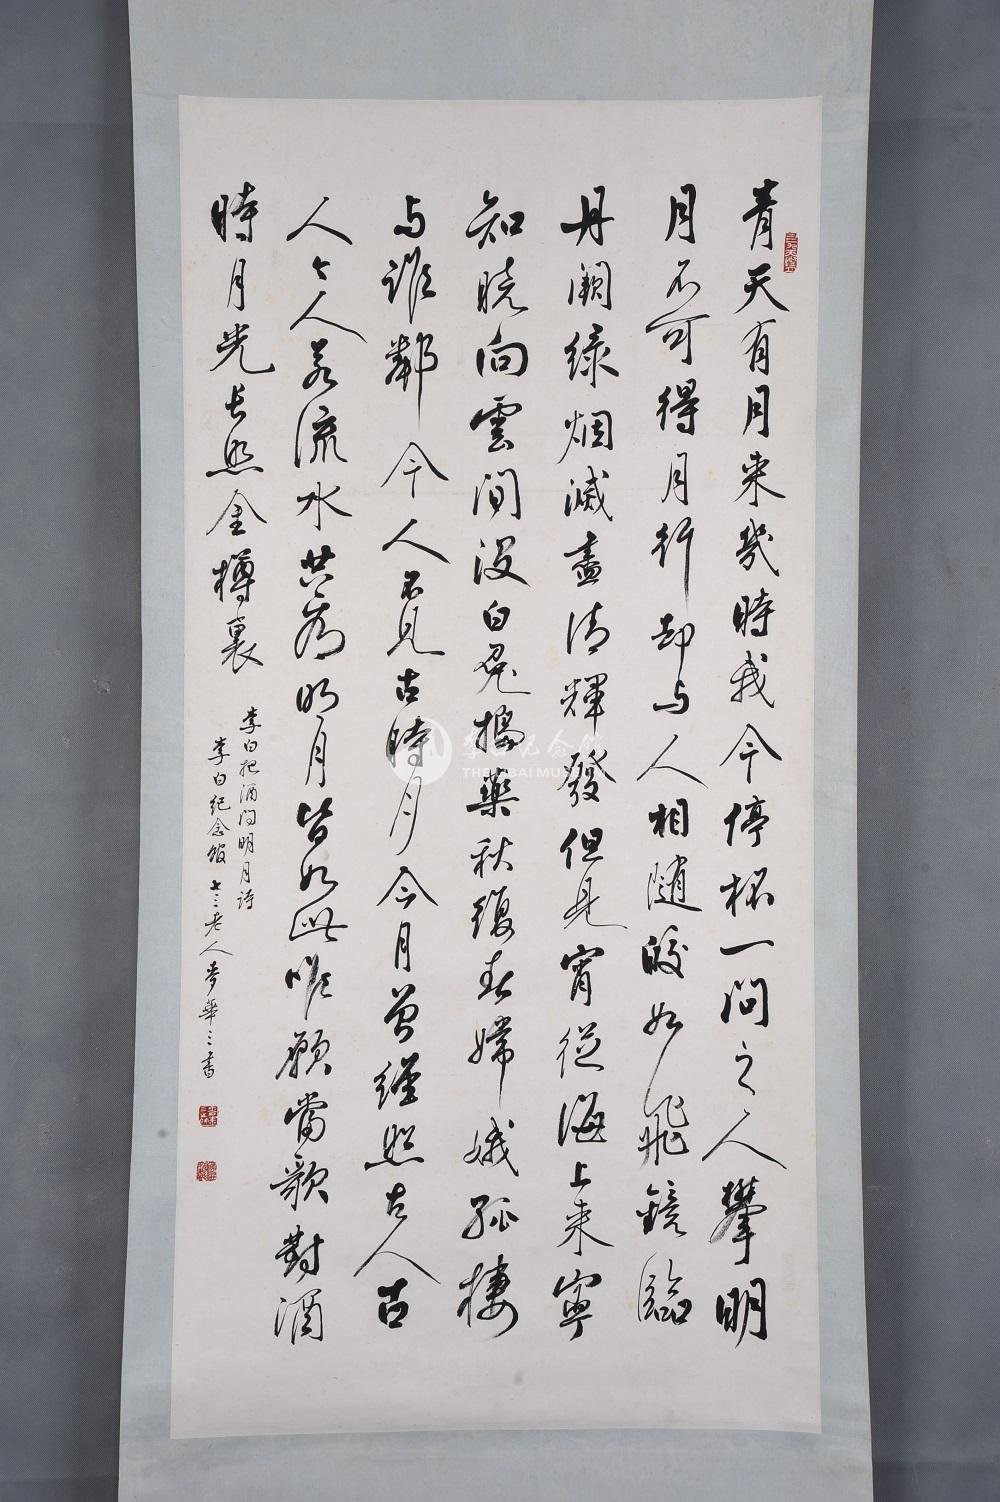 青天有月来幾時我今停杯一问之人攀明
月不可得月行却与人相随皎如飛鏡臨
丹阙绿烟滅盡清輝發但見宵從海上来寧
知曉向雲间没白兔搗藥秋復春嫦娥孤棲
与誰鄰今人不見古時月今月曾經照古人古
人今人若流水共看明月皆如此唯願當歌對酒
時月光长照金樽裏
李白把酒问明月诗
李白纪念馆 七三老人麥華三書
李白纪念馆
THE LIBAI MUSEUM